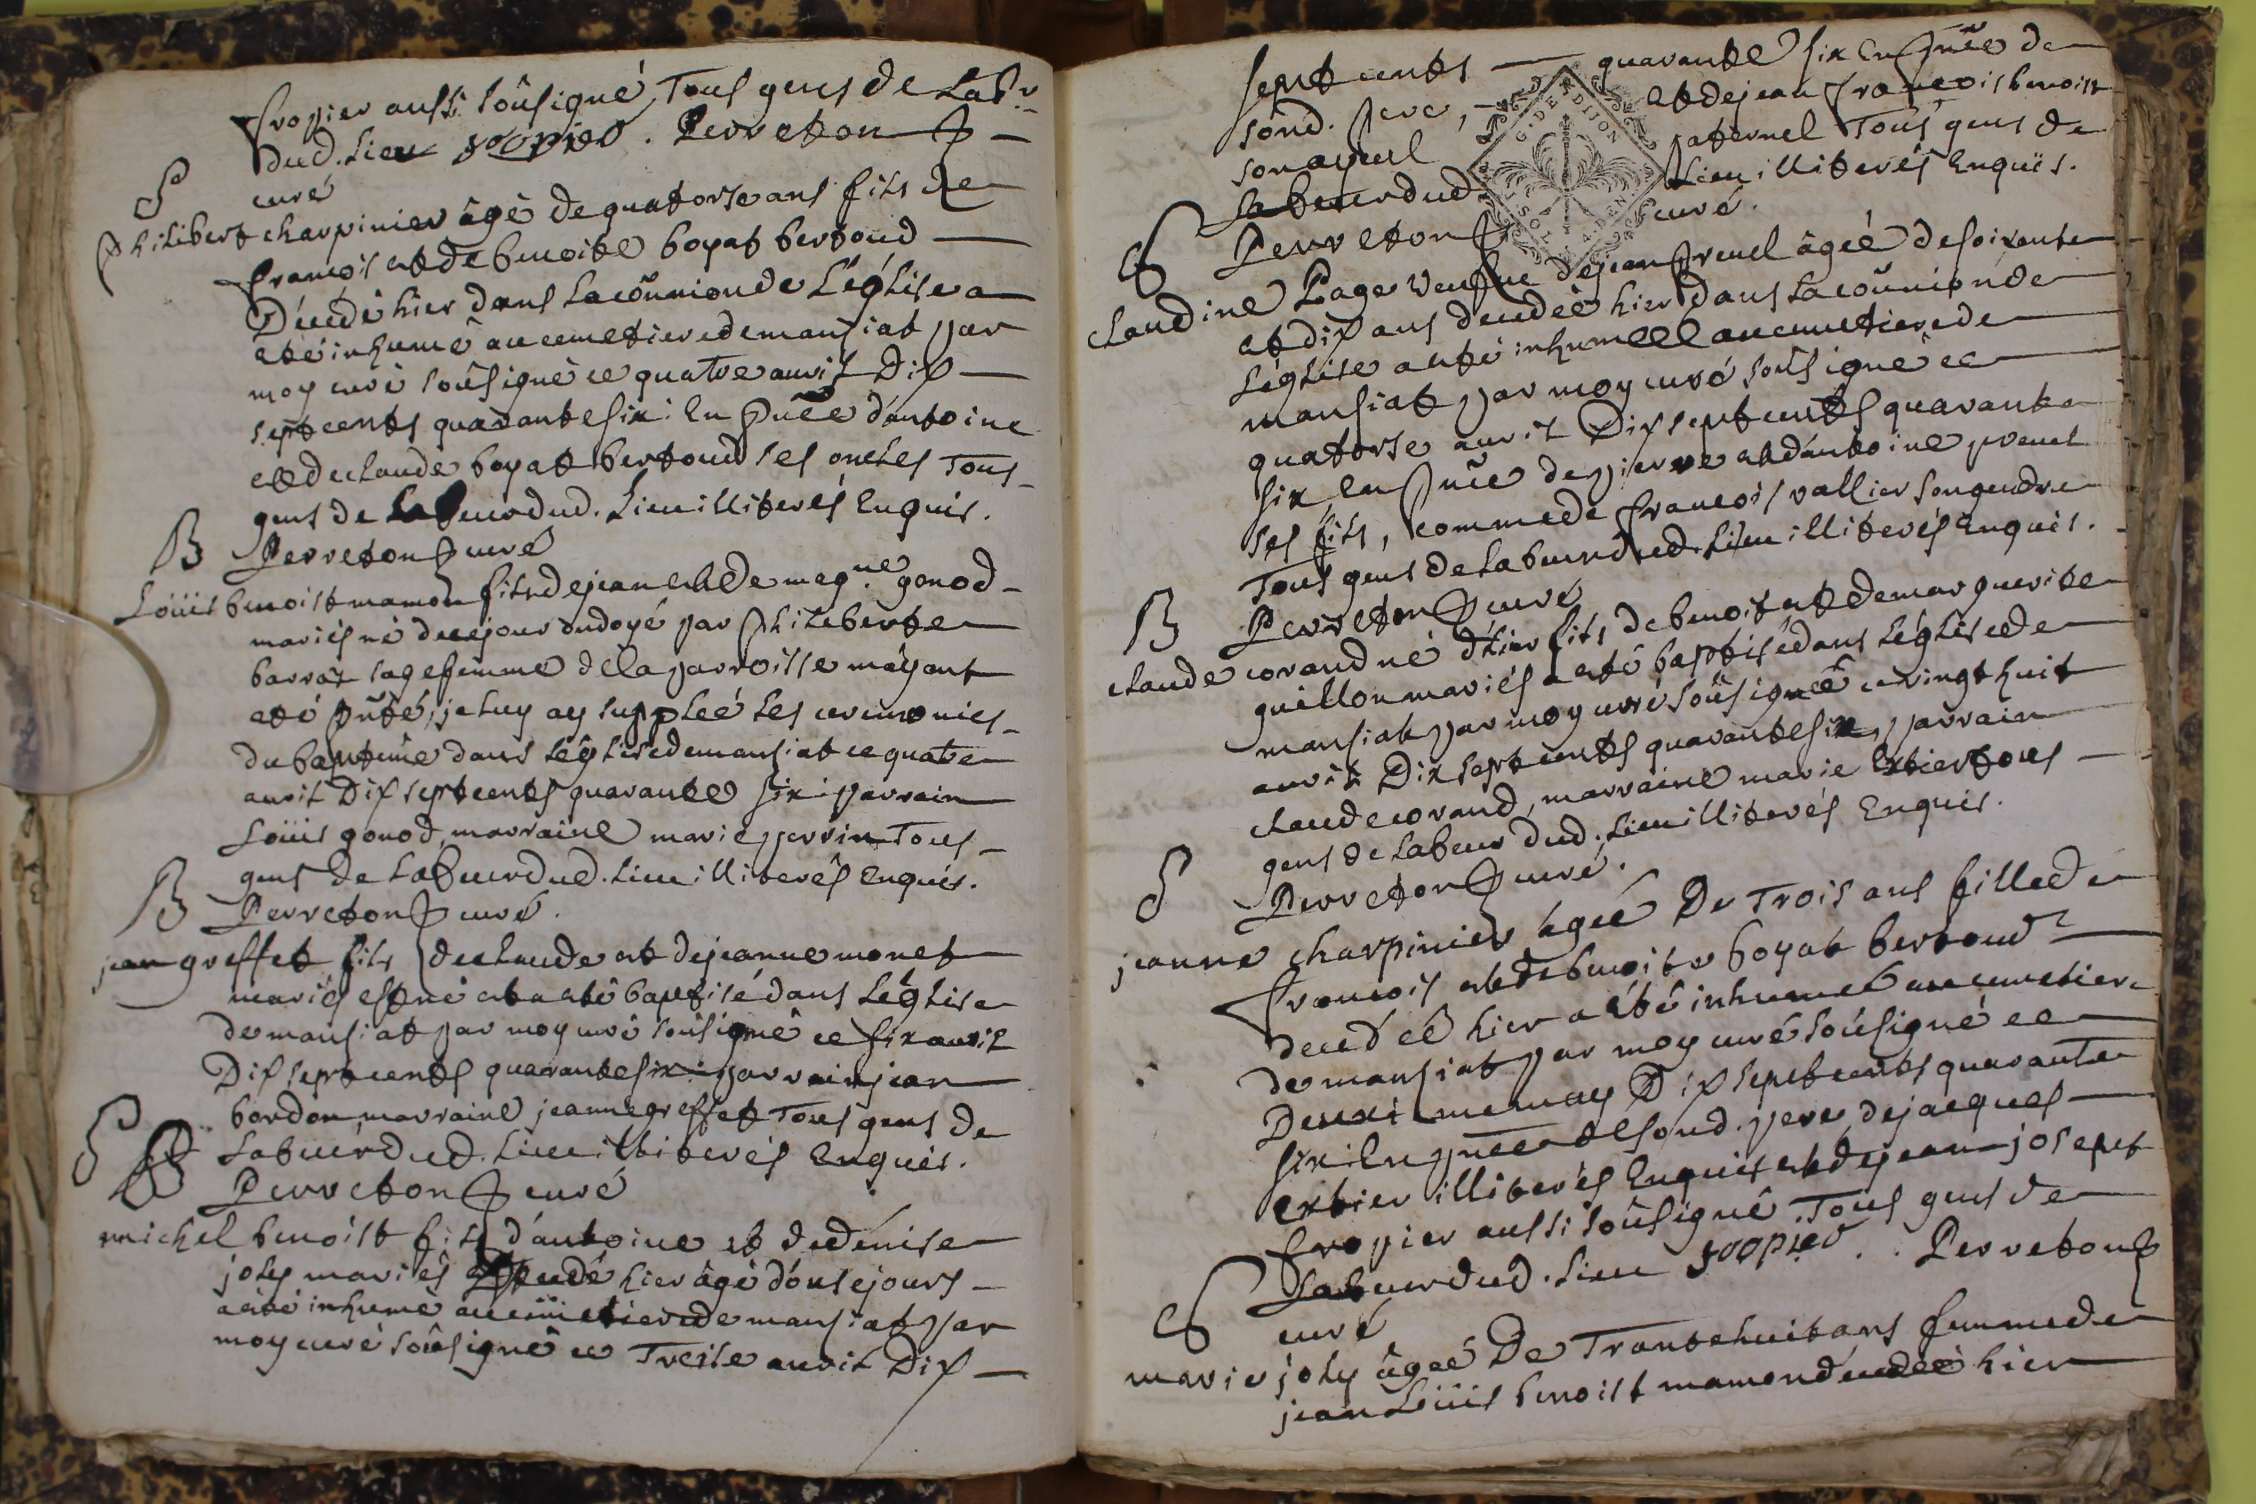 fropier aussi soûsigné, Tous gens de Labr
dud. Lieu fropier. Perreton
curé
S
philibert charpinier âgé de quatorse ans fils de
françois et de benoite boyat bertoud
Décédé hier dans la coũnion de L'églisea
eté inhumé au cemetiere de mansiat par
moy curé soûsigné ce quatre avril Dix
septcents quarantesix: En pñce d'antoine
et de claude boyat bertoud ses oncles Tous
gens de Labeur dud. Lieu illiterés Enquis.
Perreton curé
B
Loüis benoist mamon fils de jean et de magne gonod
mariés né de ce jour ondoyé par philiberte
barraz sagefemme de la parroisse m'ayant
eté pñté, je luy ay suppleé les ceremonies
du baptême dans L'église de mansiat ce quatre
avril Dix septcents quarante six: parrain
Loüis gonod, marraine marie perrin Tous
gens de Labeur dud. Lieu illiterés Enquis.
Perreton curé.
B
jean greffet fils de claude et de jeanne monet
mariés est né et a eté baptisé dans L'église
de mansiat par moy curé soûsigné ce six avril
Dix septcents quarantesix: parrain jean
bordon, marraine jeanne greffet Tous gens de
Labeur dud. Lieu illiterés Enquis.
Perreton curé
S
michel benoist fils d'antoine et de denise
joly mariés décédé hier âgé d'onse jours
a été inhumé au cemetiere de mansiat par
moy curé soûsigné ce Treise avril Dix
septcents quarante six En pñce de
sond. pere, et de jean françois benoist
son ayeul paternel Tous gens de
Labeur dud. Lieu illiterés Enquis.
Perreton curé.
G. DE DIJON
SOL
DEN
S
claudine Page veufve de jean preuel âgée de soixante
et dix ans décédée hier dans la coũnion de
L'église a eté inhumée au cemetiere de
mansiat par moy curé soûsigné ce
quatorse avril Dix septcents quarante
six, En pñce de pierre et d'antoine preuel
ses fils, comme de françois vallier son gendre
Tous gens de Labeur dud. Lieu illiterés Enquis.
Perreton curé
B
claude corand né d'hier fils de benoist et de marguerite
guillon mariés a eté baptisé dans L'église de
mansiat par moy curé soûsigné ce vingt huit
avril Dix septcents quarantesix, parrain
claude corand, marraine marie Extier tous
gens de Labeur dud. Lieu illiterés Enquis.
Perreton curé.
S
jeanne charpinier âgée De Trois ans fille de
françois et de benoite boyat bertoud
décédée hier a été inhumée au cemetiere
de mansiat par moy curé soûsigné ce
Deuxieme may Dix septcents quarante
six: En pñce de sond. pere, de jacques
Extier illiterés Enquis et de jean joseph
fropier aussi soûsigné. Tous gens de
Labeur dud. Lieu fropier. Perreton
curé
S
marie joly âgée De Trante huit ans femme de
jean Loüis benoist mamon décédée hier